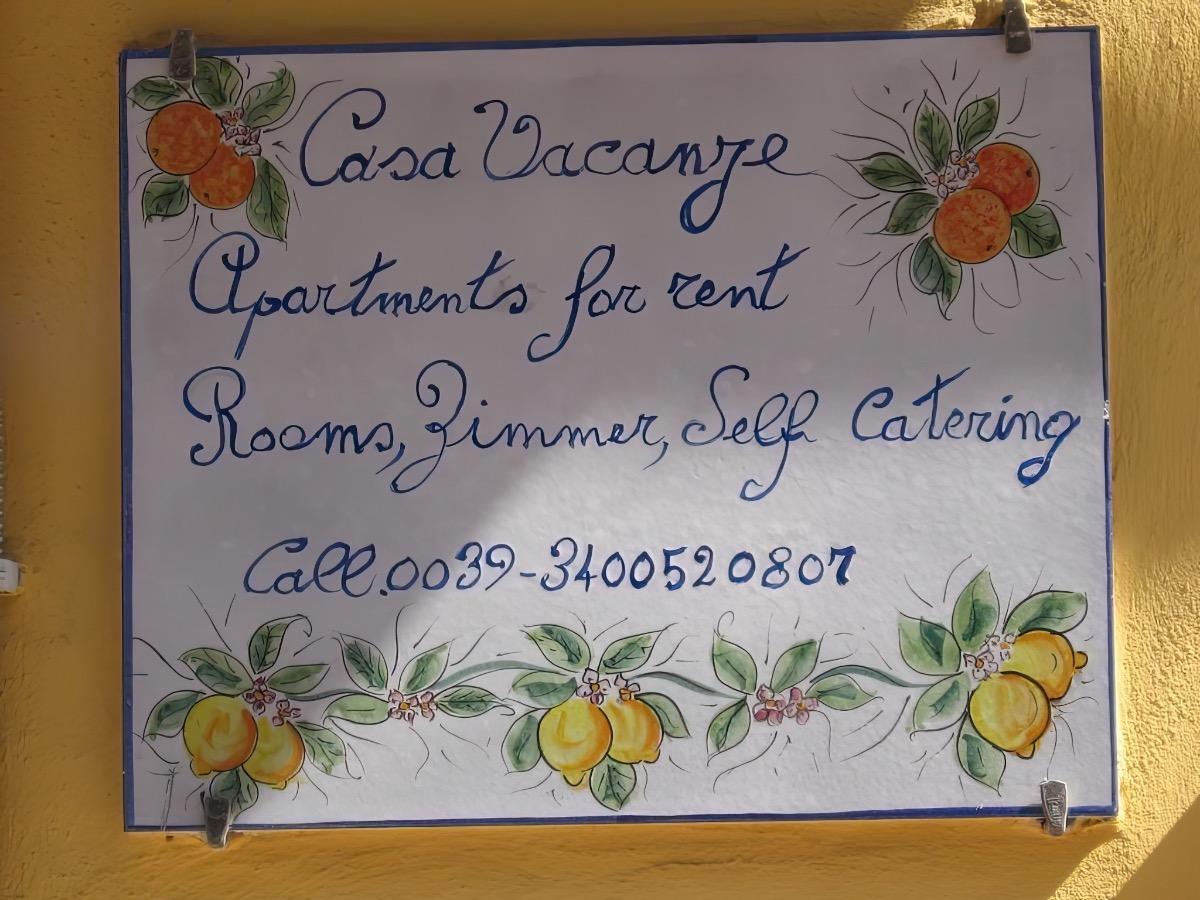 Casa Vacanze
Apartments for rent
Rooms, Zimmer, Self Catering
Call.0039-3400520807